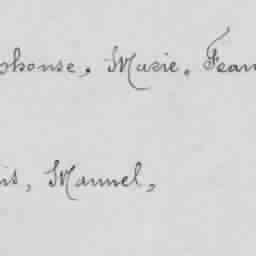 phonse, Marie, Fran
is, Manuel,